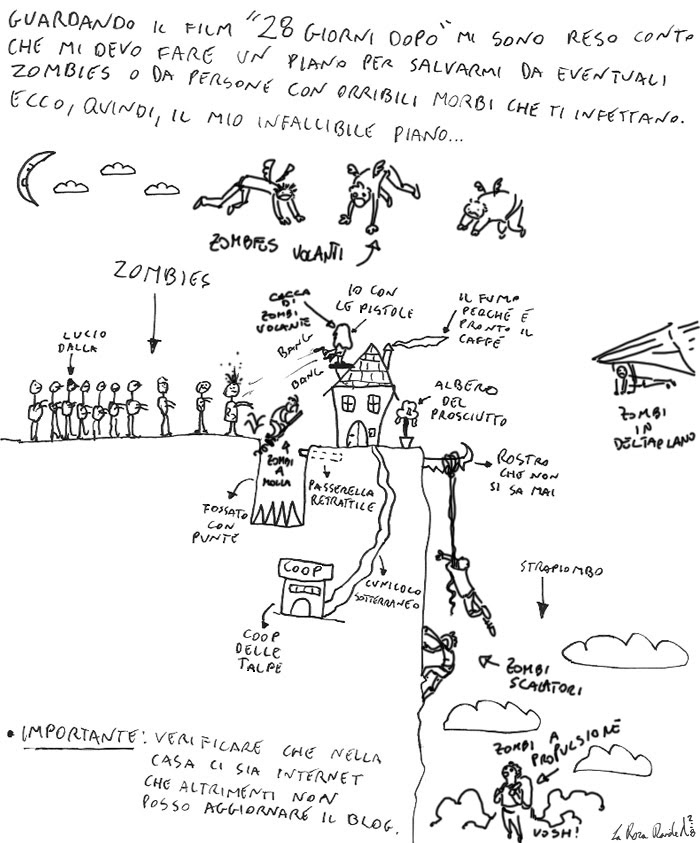 GUARDANDO IL FILM "28 GIORNI DOPO" MI SONO RESO CONTO
CHE MI DEVO FARE UN PIANO PER SALVARMI DA EVENTUALI
ZOMBIES O DA PERSONE CON ORRIBILI MORBI CHE TI INFETTANO.
ECCO, QUINDI, IL MIO INFALLIBILE PIANO...
ZOMBIES VOLANTI
ZOMBIES
LUCIO
DALLA
CACCA
DI
ZOMBI
VOLANTE
IO CON
LE PISTOLE
IL FUMO
PERCHÉ È
PRONTO IL
CAFFÈ
BANG
BANG
ALBERO
DEL
PROSCIUTTO
ZOMBI
IN
DELTAPLANO
ZOMBI
A
MOLLA
FOSSATO
CON
PUNTE
PASSERELLA
RETRATTILE
ROSTRO
CHE NON
SI SA MAI
COOP
CUNICOLO
SOTTERRANEO
COOP
DELLE
TALPE
STRAPIOMBO
ZOMBI
SCALATORI
ZOMBI A
PROPULSIONE
VOSH!
• IMPORTANTE: VERIFICARE CHE NELLA
CASA CI SIA INTERNET
CHE ALTRIMENTI NON
POSSO AGGIORNARE IL BLOG.
La Rosa